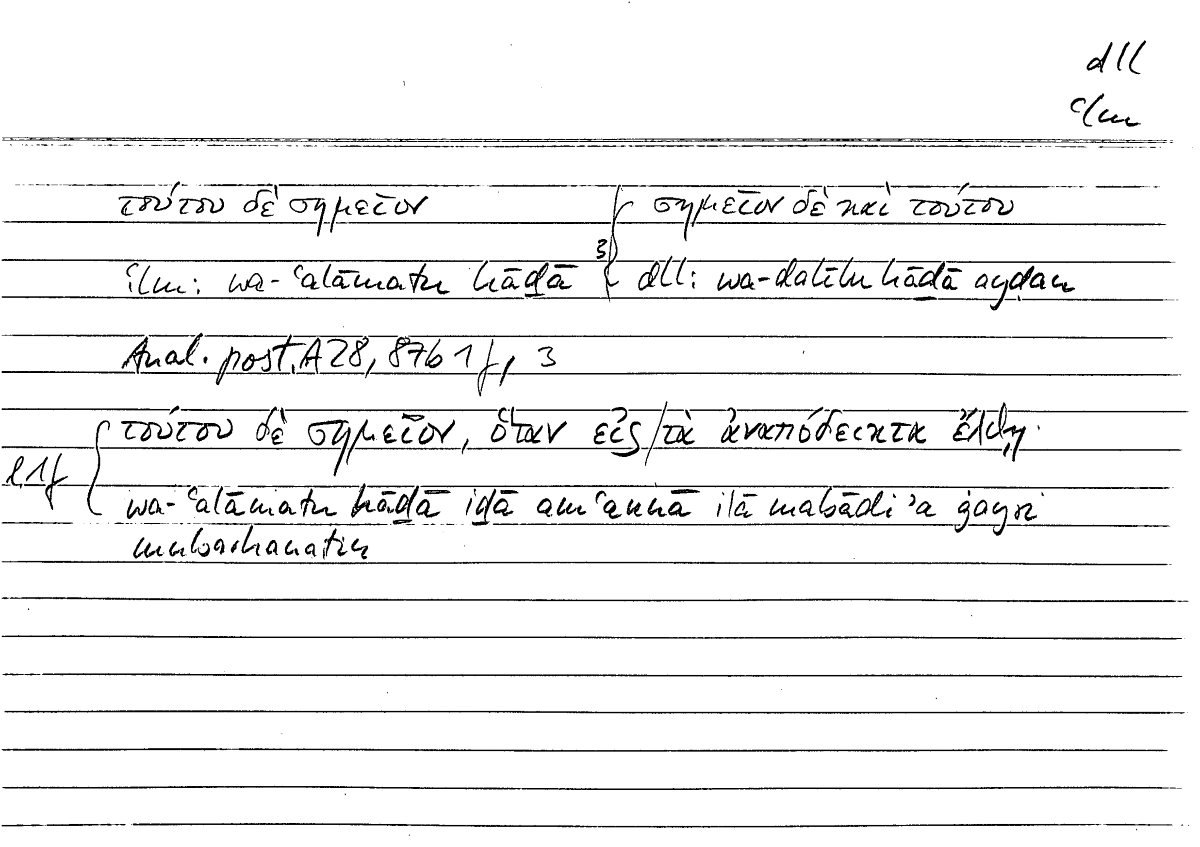 dll
ʿlm
τούτου δὲ σημεῖον 3 { σημεῖον δὲ καὶ τούτου
ʿlm: wa-ʿalāmatu hāḏā dll: wa-dalīlu hāḏā ayḍan
Anal. post. A 28, 87b 1 f, 3
τούτου δὲ σημεῖον, ὅταν εἰς / τὰ ἀναπόδεικτα ἔλθῃ·
l.1f { wa-ʿalāmatu hāḏā iḏā amʿannā ilā mabādiʾa ġayri
mubarhanatin